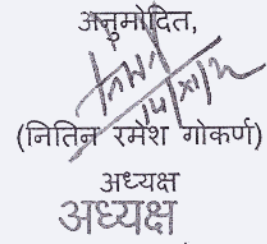 अनुमोदित,
(नितिन रमेश गोकर्ण)
अध्यक्ष
अध्यक्ष